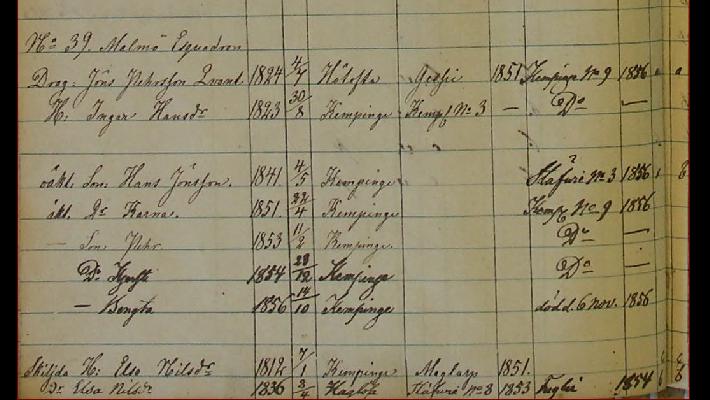 No 39. Malmö Esquadron
Drag. Jöns Pehrsson Qvant 1824 4/7 Håtofta Gessie 1851 Kempinge No 9 1856
H: Inger Hansdr 1823 30/8 Kempinge Kemp. No 3 — Do —
oäkt. Son. Hans Jönsson. 1841. 4/5 Kempinge No 3 1856
äkt. Dr Karna. 1851. 22/4 Kempinge Kemp. No 9 1856
— Son. Pehr 1853 11/2 Kempinge. Do —
Dr 1854 28/12 Kempinge Do —
— Bengta 1856 14/10 Kempinge död d. 6 nov. 1856
Skiljda H: Elsa Nilsdr 1812 7/1 Kempinge Maglarp 1851.
Dr Elsa Nilsdr 1836 3/4 No 8 1853 1854